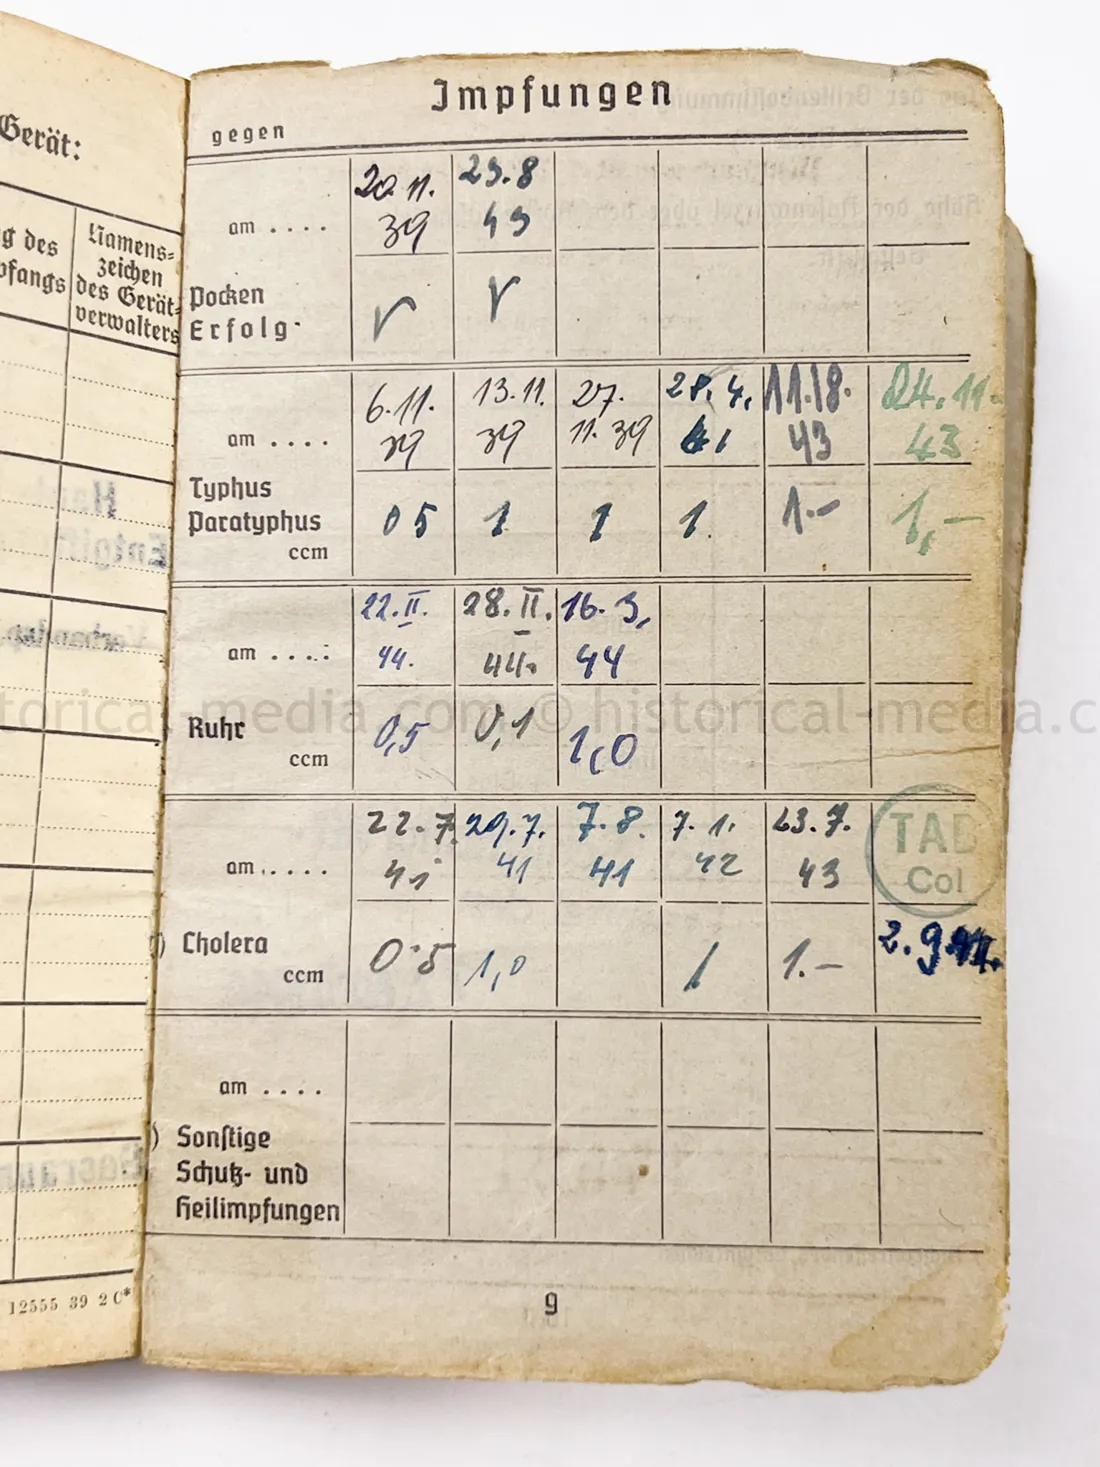 Gerät:
g des
pfangs
Namens-
zeichen
des Gerät-
verwalters
12555 39 2 C*
Impfungen
gegen
am . . . .
20. 11.
39
23. 8
43
Pocken
Erfolg
V V
am . . . .
6. 11.
39
13. 11.
39
27.
11. 39
28. 4.
41
11. 8.
43
24. 11.
43
Typhus
Paratyphus
ccm
0 5 1 1 1. 1.- 1,-
am . . . .
22. II.
44.
28. II.
44.
16. 3.
44
Ruhr
ccm
0,5 0,1 1,0
am . . . . .
22. 7.
41
29. 7.
41
7. 8.
41
7. 1.
42
23. 7.
43
TAB
Col
) Cholera
ccm
0.5 1,0 1 1.- 2. 9
am . . . .
) Sonstige
Schutz- und
Heilimpfungen
9
historical-media.com © historical-media.c